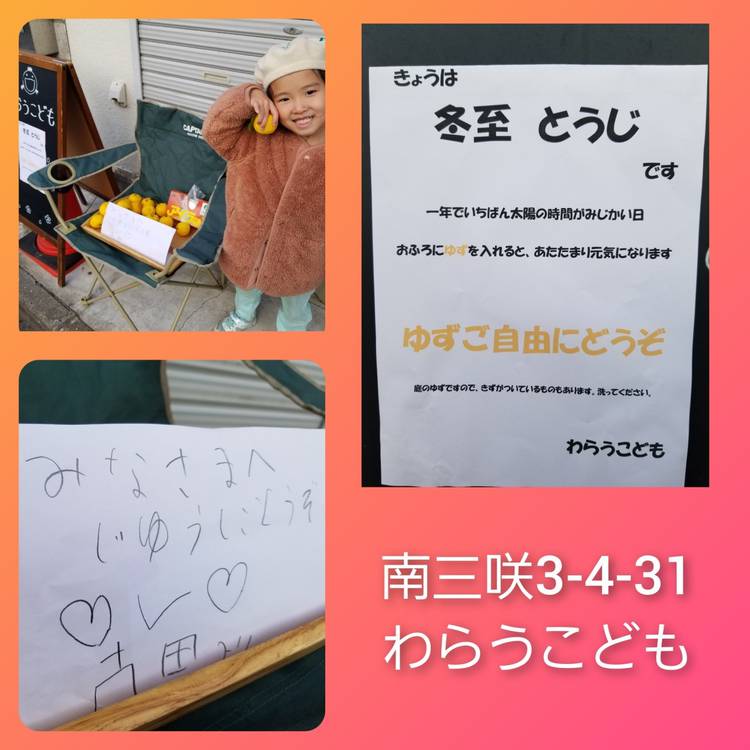 らうこども
冬至 とうじ
CAPTAIN
きょうは
冬至 とうじ
です
一年でいちばん太陽の時間がみじかい日
おふろにゆずを入れると、あたたまり元気になります
ゆずご自由にどうぞ
庭のゆずですので、きずがついているものもあります。洗ってください。
わらうこども
みなさまへ
じゆうにどうぞ
南三咲3-4-31
わらうこども